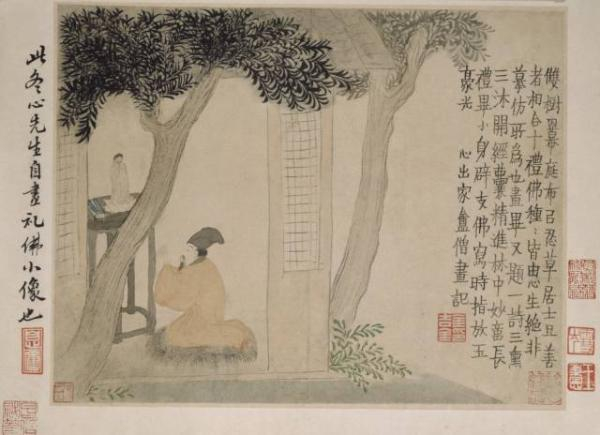 雙樹羃庭布忍草居士善
者相合十禮佛種種皆生絕非
摹仿所為也畫畢又題一詩三熏
三沐開經囊精進林中妙長
禮畢小身辟支佛寫時指放五
豪光 心出家盦僧畫記
此冬心先生自畫礼佛小像也